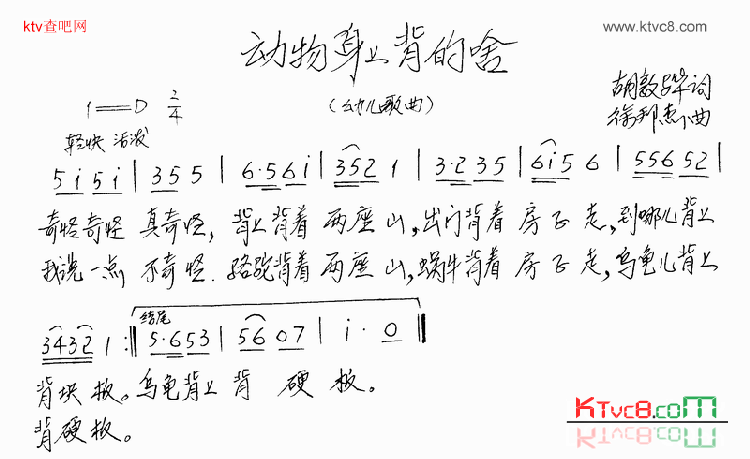 ktv查吧网
www.ktvc8.com
动物身上背的啥
(幼儿歌曲)
1=D 2/4
胡敦骅词
徐邦杰曲
轻快 活泼
5i5i | 355 | 6·56i | 3521 | 3·235 | 6i56 | 55652 |
奇怪奇怪 真奇怪, 背上背着 两座山,出门背着 房子走,到哪儿背上
我说一点 不奇怪.骆驼背着 两座山,蜗牛背着 房子走,乌龟儿背上
结尾
34321 :‖ 5·653 | 5607 | i·0 ‖
背块板。乌龟背上 背 硬 板。
背硬板。
KTvc8.com